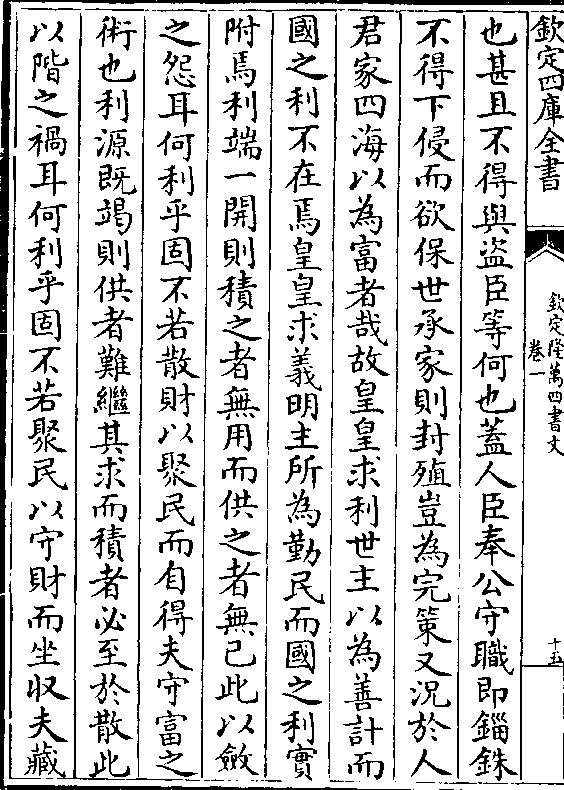 欽定四庫全書
欽定隆萬四書文
卷一
十五
也甚且不得與盗臣等何也蓋人臣奉公守職即錙銖
不得下侵而欲保世承家則封殖豈為完策又況於人
君家四海以為富者哉故皇皇求利世主以為善計而
國之利不在焉皇皇求義明主所為勤民而國之利實
附焉利端一開則積之者無用而供之者無已此以斂
之怨耳何利乎固不若散財以聚民而自得夫守富之
術也利源既竭則供者難繼其求而積者必至於散此
以階之禍耳何利乎固不若聚民以守財而坐収夫藏